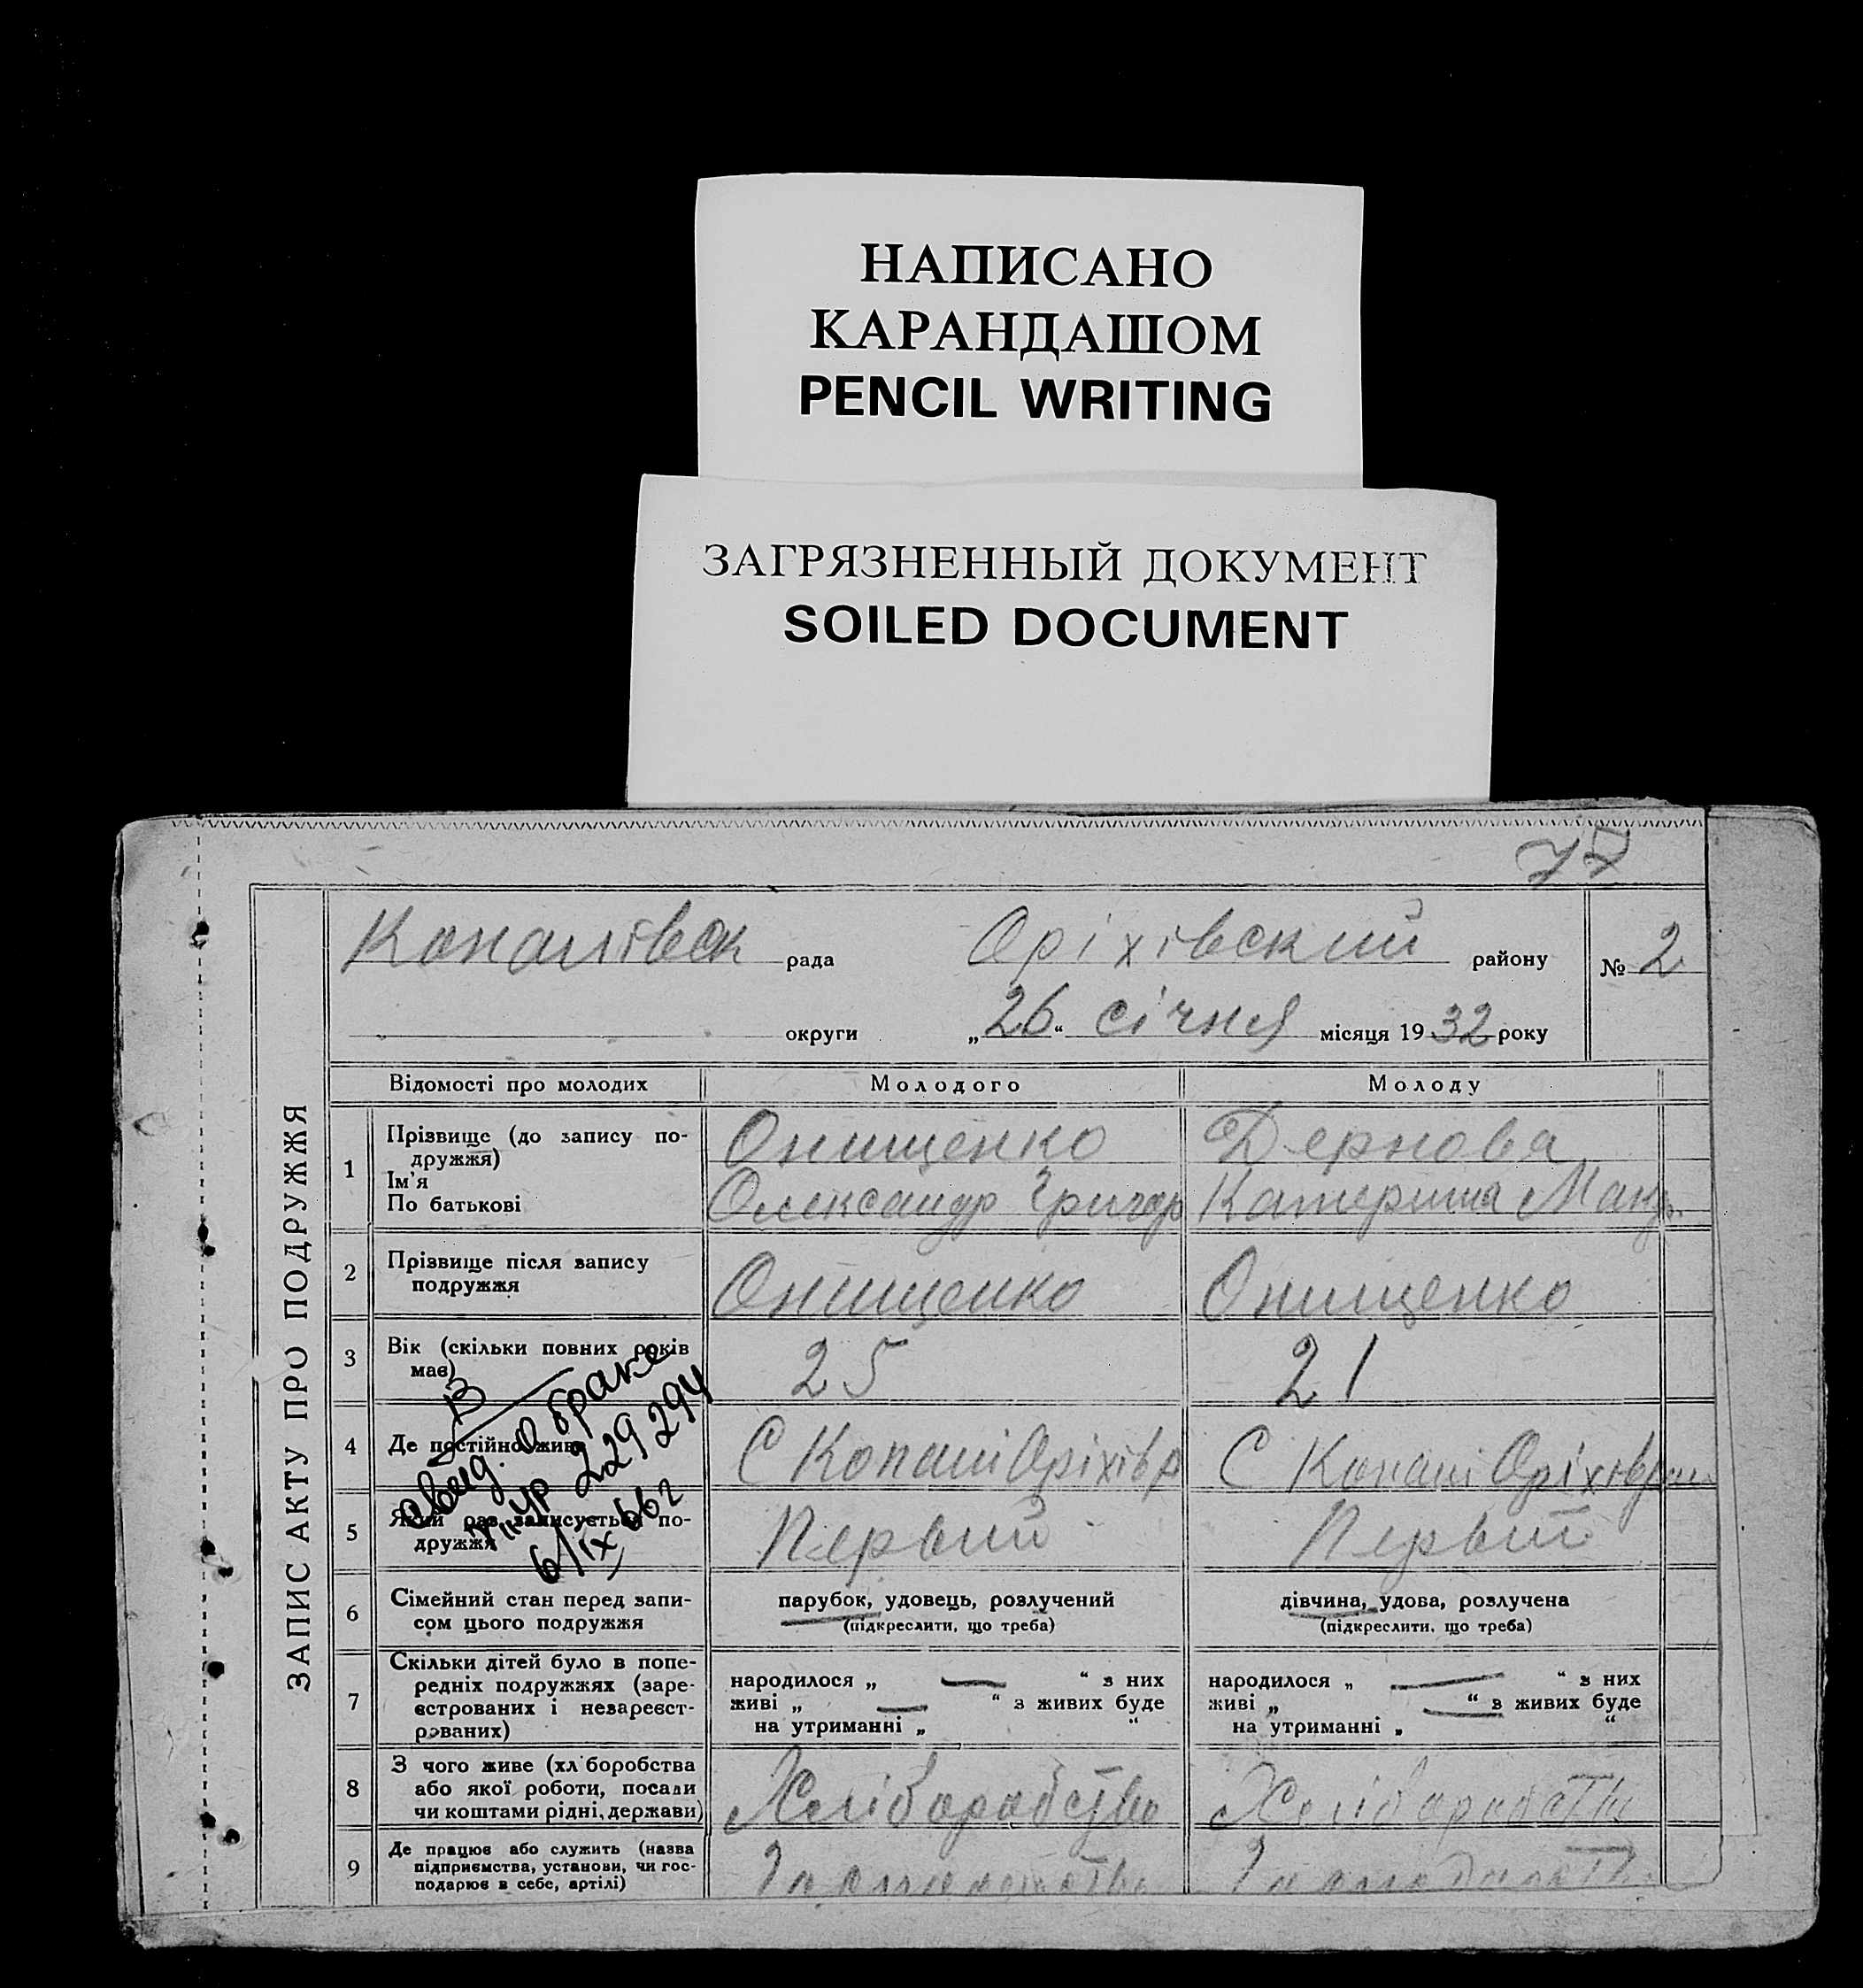 НАПИСАНО
КАРАНДАШОМ
PENCIL WRITING
ЗАГРЯЗНЕННЫЙ ДОКУМЕНТ
SOILED DOCUMENT
77
ЗАПИС АКТУ ПРО ПОДРУЖЖЯ
Копанівск рада Оріхівский району № 2
округи „26“ січня місяця 1932 року
Відомості про молодих Молодого Молоду
1 Прізвище (до запису по-
дружжя) Онищенко Дернова
Ім'я
По батькові Олександр Григор Катерина Мак
2 Прізвище після запису
подружжя Онищенко Онищенко
3 Вік (скільки повних років
має) 25 21
4 Де постійно живе С Копані Оріхів р С Копані Оріхів рай
5 Який раз записується по-
дружжя Первий Первий
В
свид. о браке
229294
6/IX 66 г
6 Сімейний стан перед запи-
сом цього подружжя
парубок, удовець, розлучений
(підкреслити, що треба)
дівчина, удова, розлучена
(підкреслити, що треба)
7 Скільки дітей було в попе-
редніх подружжях (заре-
єстрованих і незареєст-
рованих)
народилося „ — “ з них
живі „ — “ з живих буде
на утриманні „ “
народилося „ — “ з них
живі „ — “ з живих буде
на утриманні „ “
8 З чого живе (хліборобства
або якої роботи, посади
чи коштами рідні, держави) Хліборобство Хліборобство
9 Де працює або служить (назва
підприємства, установи, чи гос-
подарює в себе, артілі)